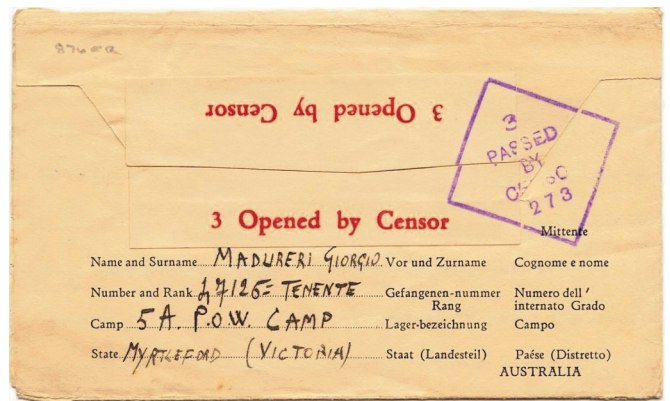 3 Opened by Censor
3
PASSED
BY
273
3 Opened by Censor
Mittente
Name and Surname MADURERI GIORGIO Vor und Zurname Cognome e nome
Number and Rank 47126= TENENTE Gefangenen-nummer Rang Numero dell' internato Grado
Camp 5 A. P.O.W. CAMP Lager-bezeichnung Campo
State MYRTLEFORD (VICTORIA) Staat (Landesteil) Paése (Distretto)
AUSTRALIA